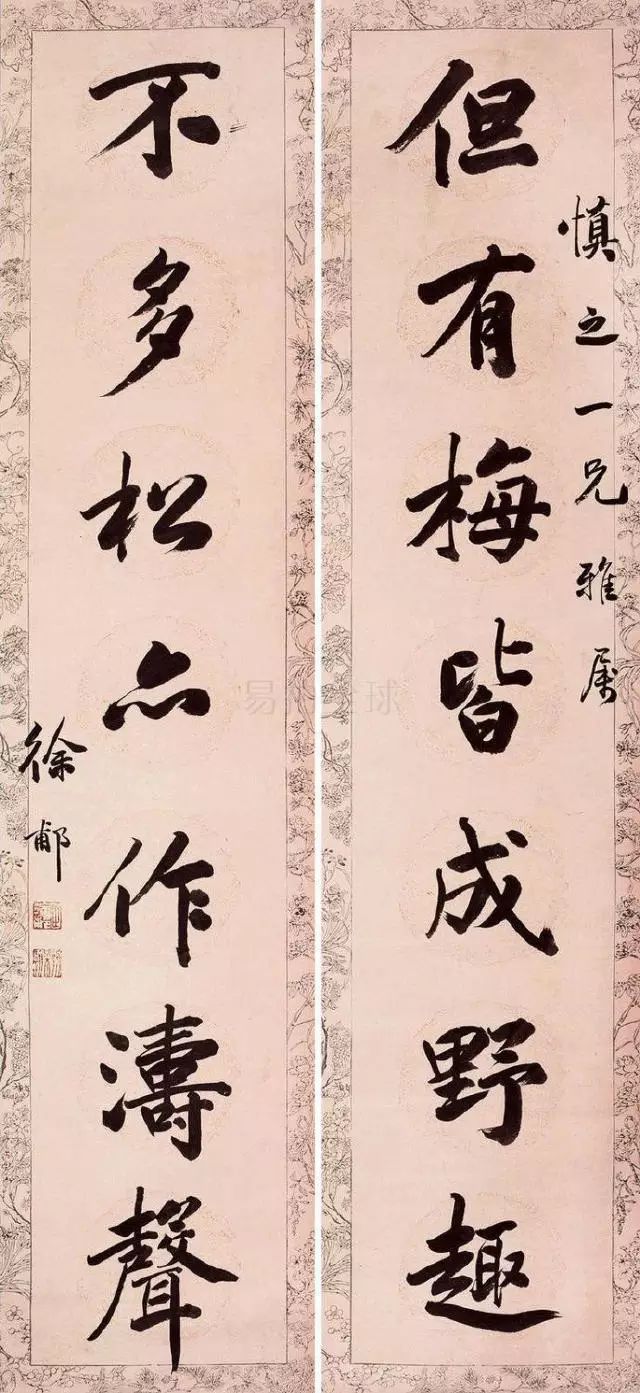 但有梅皆成野趣
慎之一兄雅属
不多松亦作濤聲
徐郙